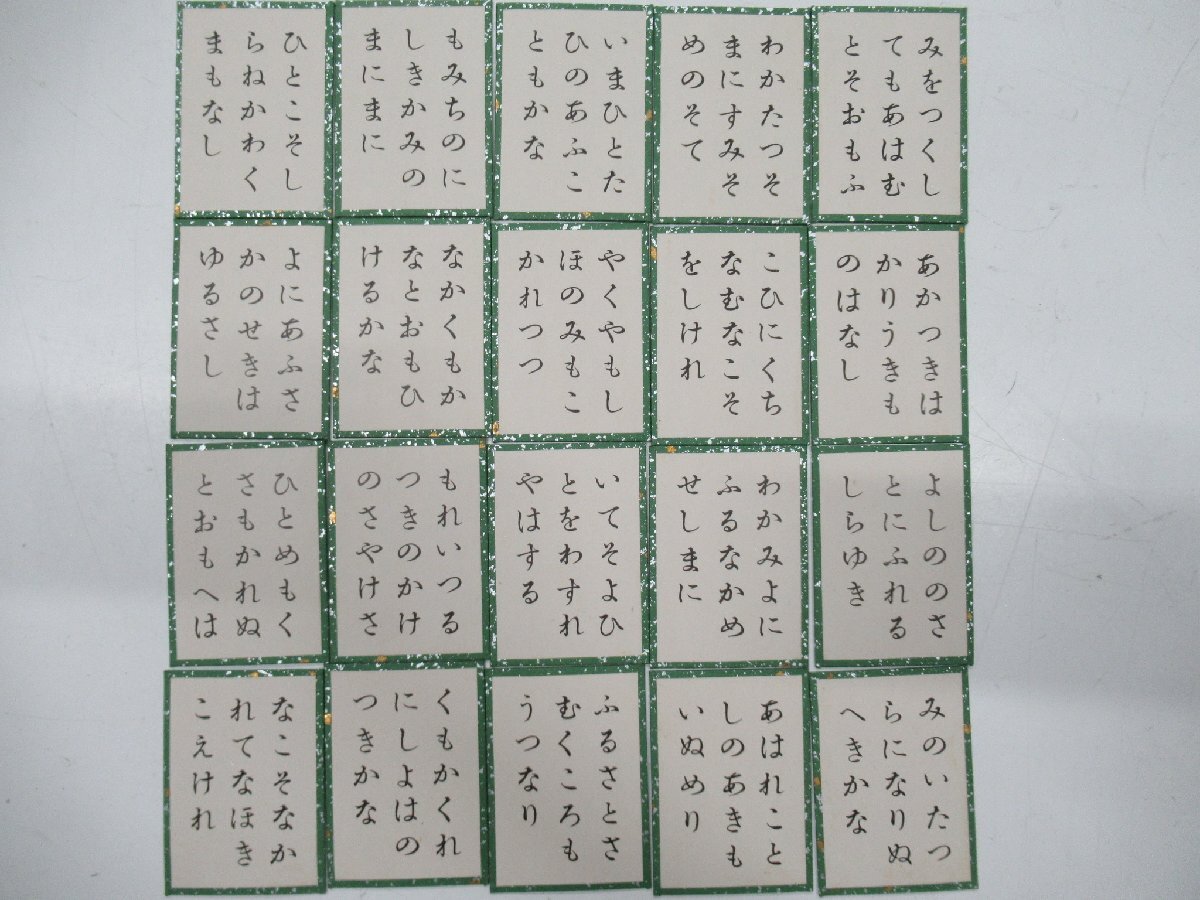 みをつくし
てもあはむ
とそおもふ
わかたつそ
まにすみそ
めのそて
いまひとた
ひのあふこ
ともかな
もみちのに
しきかみの
まにまに
ひとこそし
らねかわく
まもなし
あかつきは
かりうきも
のはなし
こひにくち
なむなこそ
をしけれ
やくやもし
ほのみもこ
かれつつ
なかくもか
なとおもひ
けるかな
よにあふさ
かのせきは
ゆるさし
よしののさ
とにふれる
しらゆき
わかみよに
ふるなかめ
せしまに
いてそよひ
とをわすれ
やはする
もれいつる
つきのかけ
のさやけさ
ひとめもく
さもかれぬ
とおもへは
みのいたつ
らになりぬ
へきかな
あはれこと
しのあきも
いぬめり
ふるさとさ
むくころも
うつなり
くもかくれ
にしよはの
つきかな
なこそなか
れてなほき
こえけれ